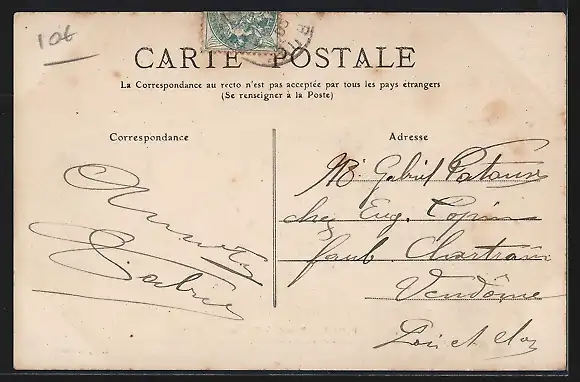 106
CARTE POSTALE
La Correspondance au recto n'est pas acceptée par tous les pays étrangers
(Se renseigner à la Poste)
Correspondance
Adresse
Mr Gabriel Patoux
chez Eug. Copin
faub. Chartrain
Vendôme
Loir et Cher
Gabriel